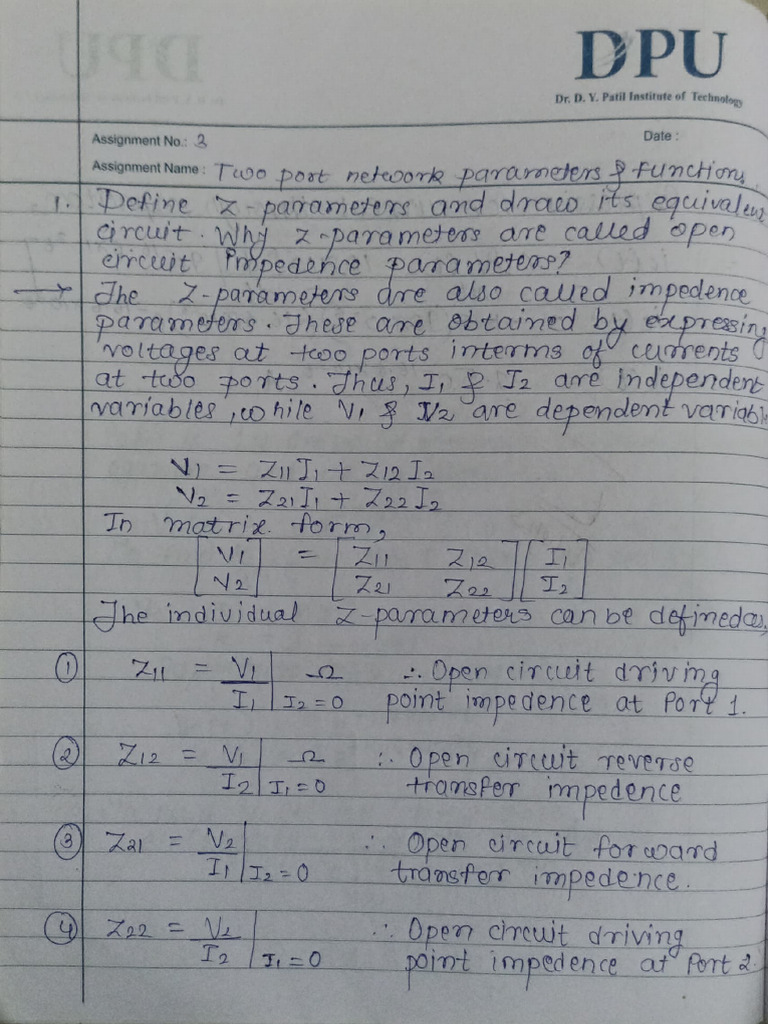 DPU
Dr. D. Y. Patil Institute of Technology
Assignment No.: 3
Date :
Assignment Name : Two port network parameters & function,
1. Define Z-parameters and draw its equivalent
circuit. Why Z-parameters are called open
circuit impedence parameters?
→ The Z-parameters are also called impedence
parameters. These are obtained by expressing
voltages at two ports interms of currents
at two ports. Thus, I1 & I2 are independent
variables, while V1 & V2 are dependent variable
V1 = Z11 I1 + Z12 I2
V2 = Z21 I1 + Z22 I2
In matrix form,
[V1] = [Z11 Z12] [I1]
[V2] [Z21 Z22] [I2]
The individual Z-parameters can be defined as,
① Z11 = V1/I1 | I2 = 0 Ω ∴ Open circuit driving
point impedence at Port 1.
② Z12 = V1/I2 | I1 = 0 Ω ∴ Open circuit reverse
transfer impedence
③ Z21 = V2/I1 | I2 = 0 ∴ Open circuit forward
transfer impedence.
④ Z22 = V2/I2 | I1 = 0 ∴ Open circuit driving
point impedence at Port 2.